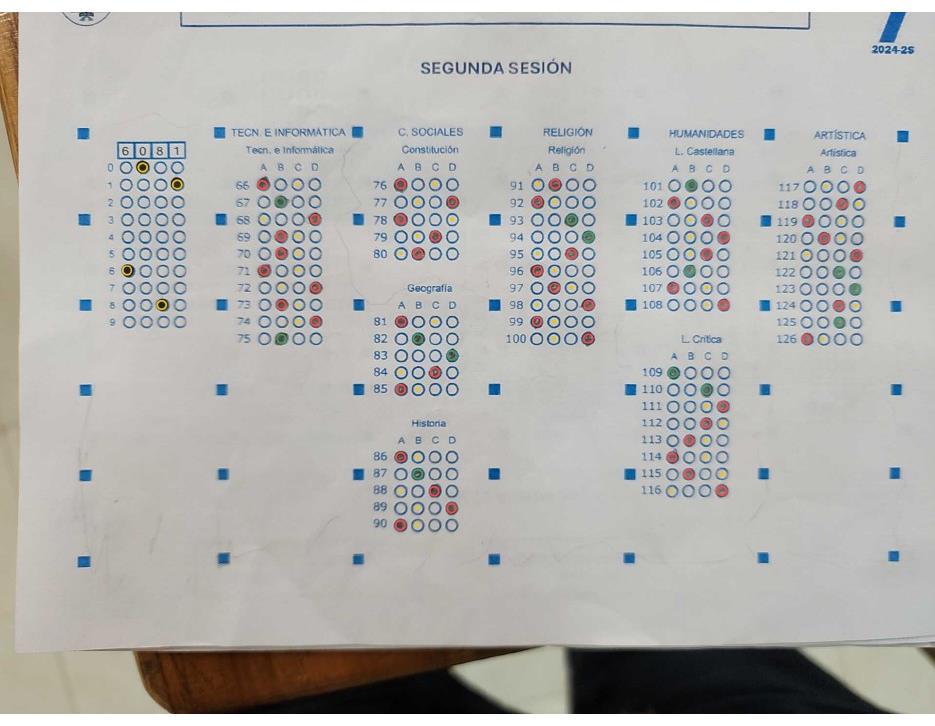 7
2024-25
SEGUNDA SESIÓN
6 0 8 1
0
1
2
3
4
5
6
7
8
9
TECN. E INFORMÁTICA
Tecn. e Informática
A B C D
66
67
68
69
70
71
72
73
74
75
C. SOCIALES
Constitución
A B C D
76
77
78
79
80
Geografía
A B C D
81
82
83
84
85
Historia
A B C D
86
87
88
89
90
RELIGIÓN
Religión
A B C D
91
92
93
94
95
96
97
98
99
100
HUMANIDADES
L. Castellana
A B C D
101
102
103
104
105
106
107
108
L. Crítica
A B C D
109
110
111
112
113
114
115
116
ARTÍSTICA
Artística
A B C D
117
118
119
120
121
122
123
124
125
126